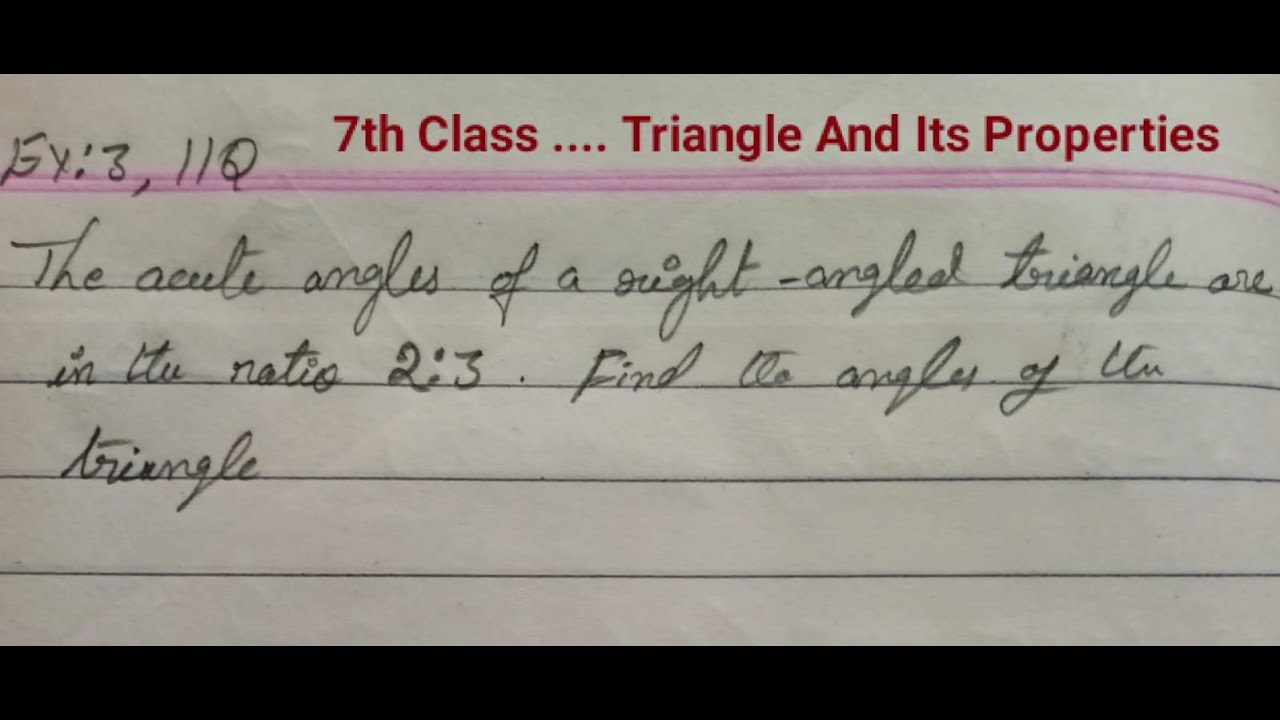 7th Class .... Triangle And Its Properties
Ex:3, 11Q
The acute angles of a right-angled triangle are
in the ratio 2:3. Find the angles of the
triangle